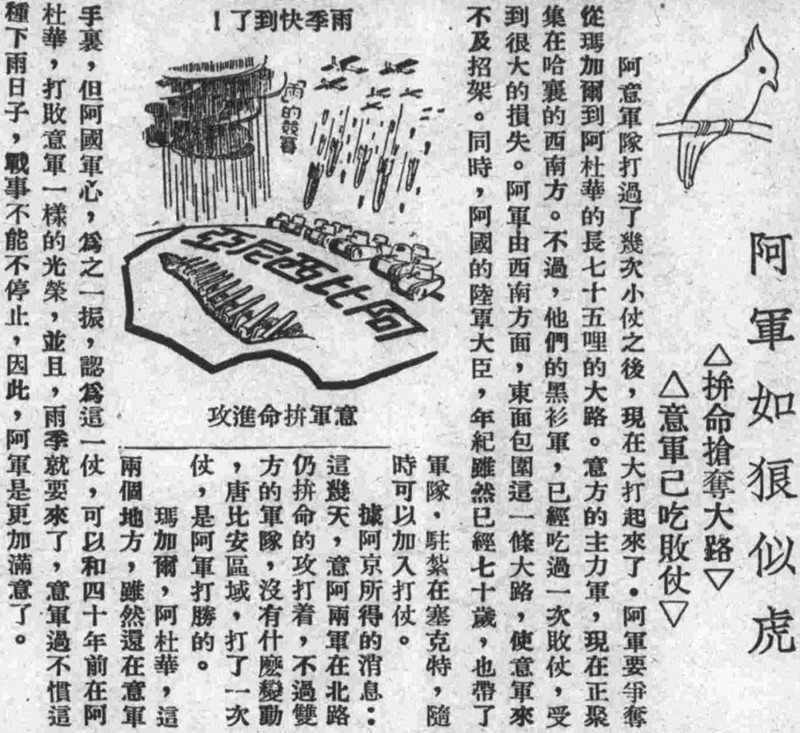 阿軍如狼似虎
△拚命搶奪大路▽
△意軍已吃敗仗▽
阿意軍隊打過了幾次小仗之後，現在大打起來了。阿軍要爭奪
從瑪加爾到阿杜華的長七十五哩的大路。意方的主力軍，現在正聚
集在哈襄的西南方。不過，他們的黑衫軍，已經吃過一次敗仗，受
到很大的損失。阿軍由西南方面，東面包圍這一條大路，使意軍來
不及招架。同時，阿國的陸軍大臣，年紀雖然已經七十歲，也帶了
軍隊，駐紮在塞克特，隨
時可以加入打仗。
據阿京所得的消息：
這幾天，意阿兩軍在北路
仍拚命的攻打着，不過雙
方的軍隊，沒有什麽變動
，唐比安區域，打了一次
仗，是阿軍打勝的。
瑪加爾，阿杜華，這
兩個地方，雖然還在意軍
手裏，但阿國軍心，爲之一振，認爲這一仗，可以和四十年前在阿
杜華，打敗意軍一樣的光榮，並且，雨季就要來了，意軍過不慣這
種下雨日子，戰事不能不停止，因此，阿軍是更加滿意了。
雨季快到了！
雨的競賽
阿比西尼亞
意軍拚命進攻